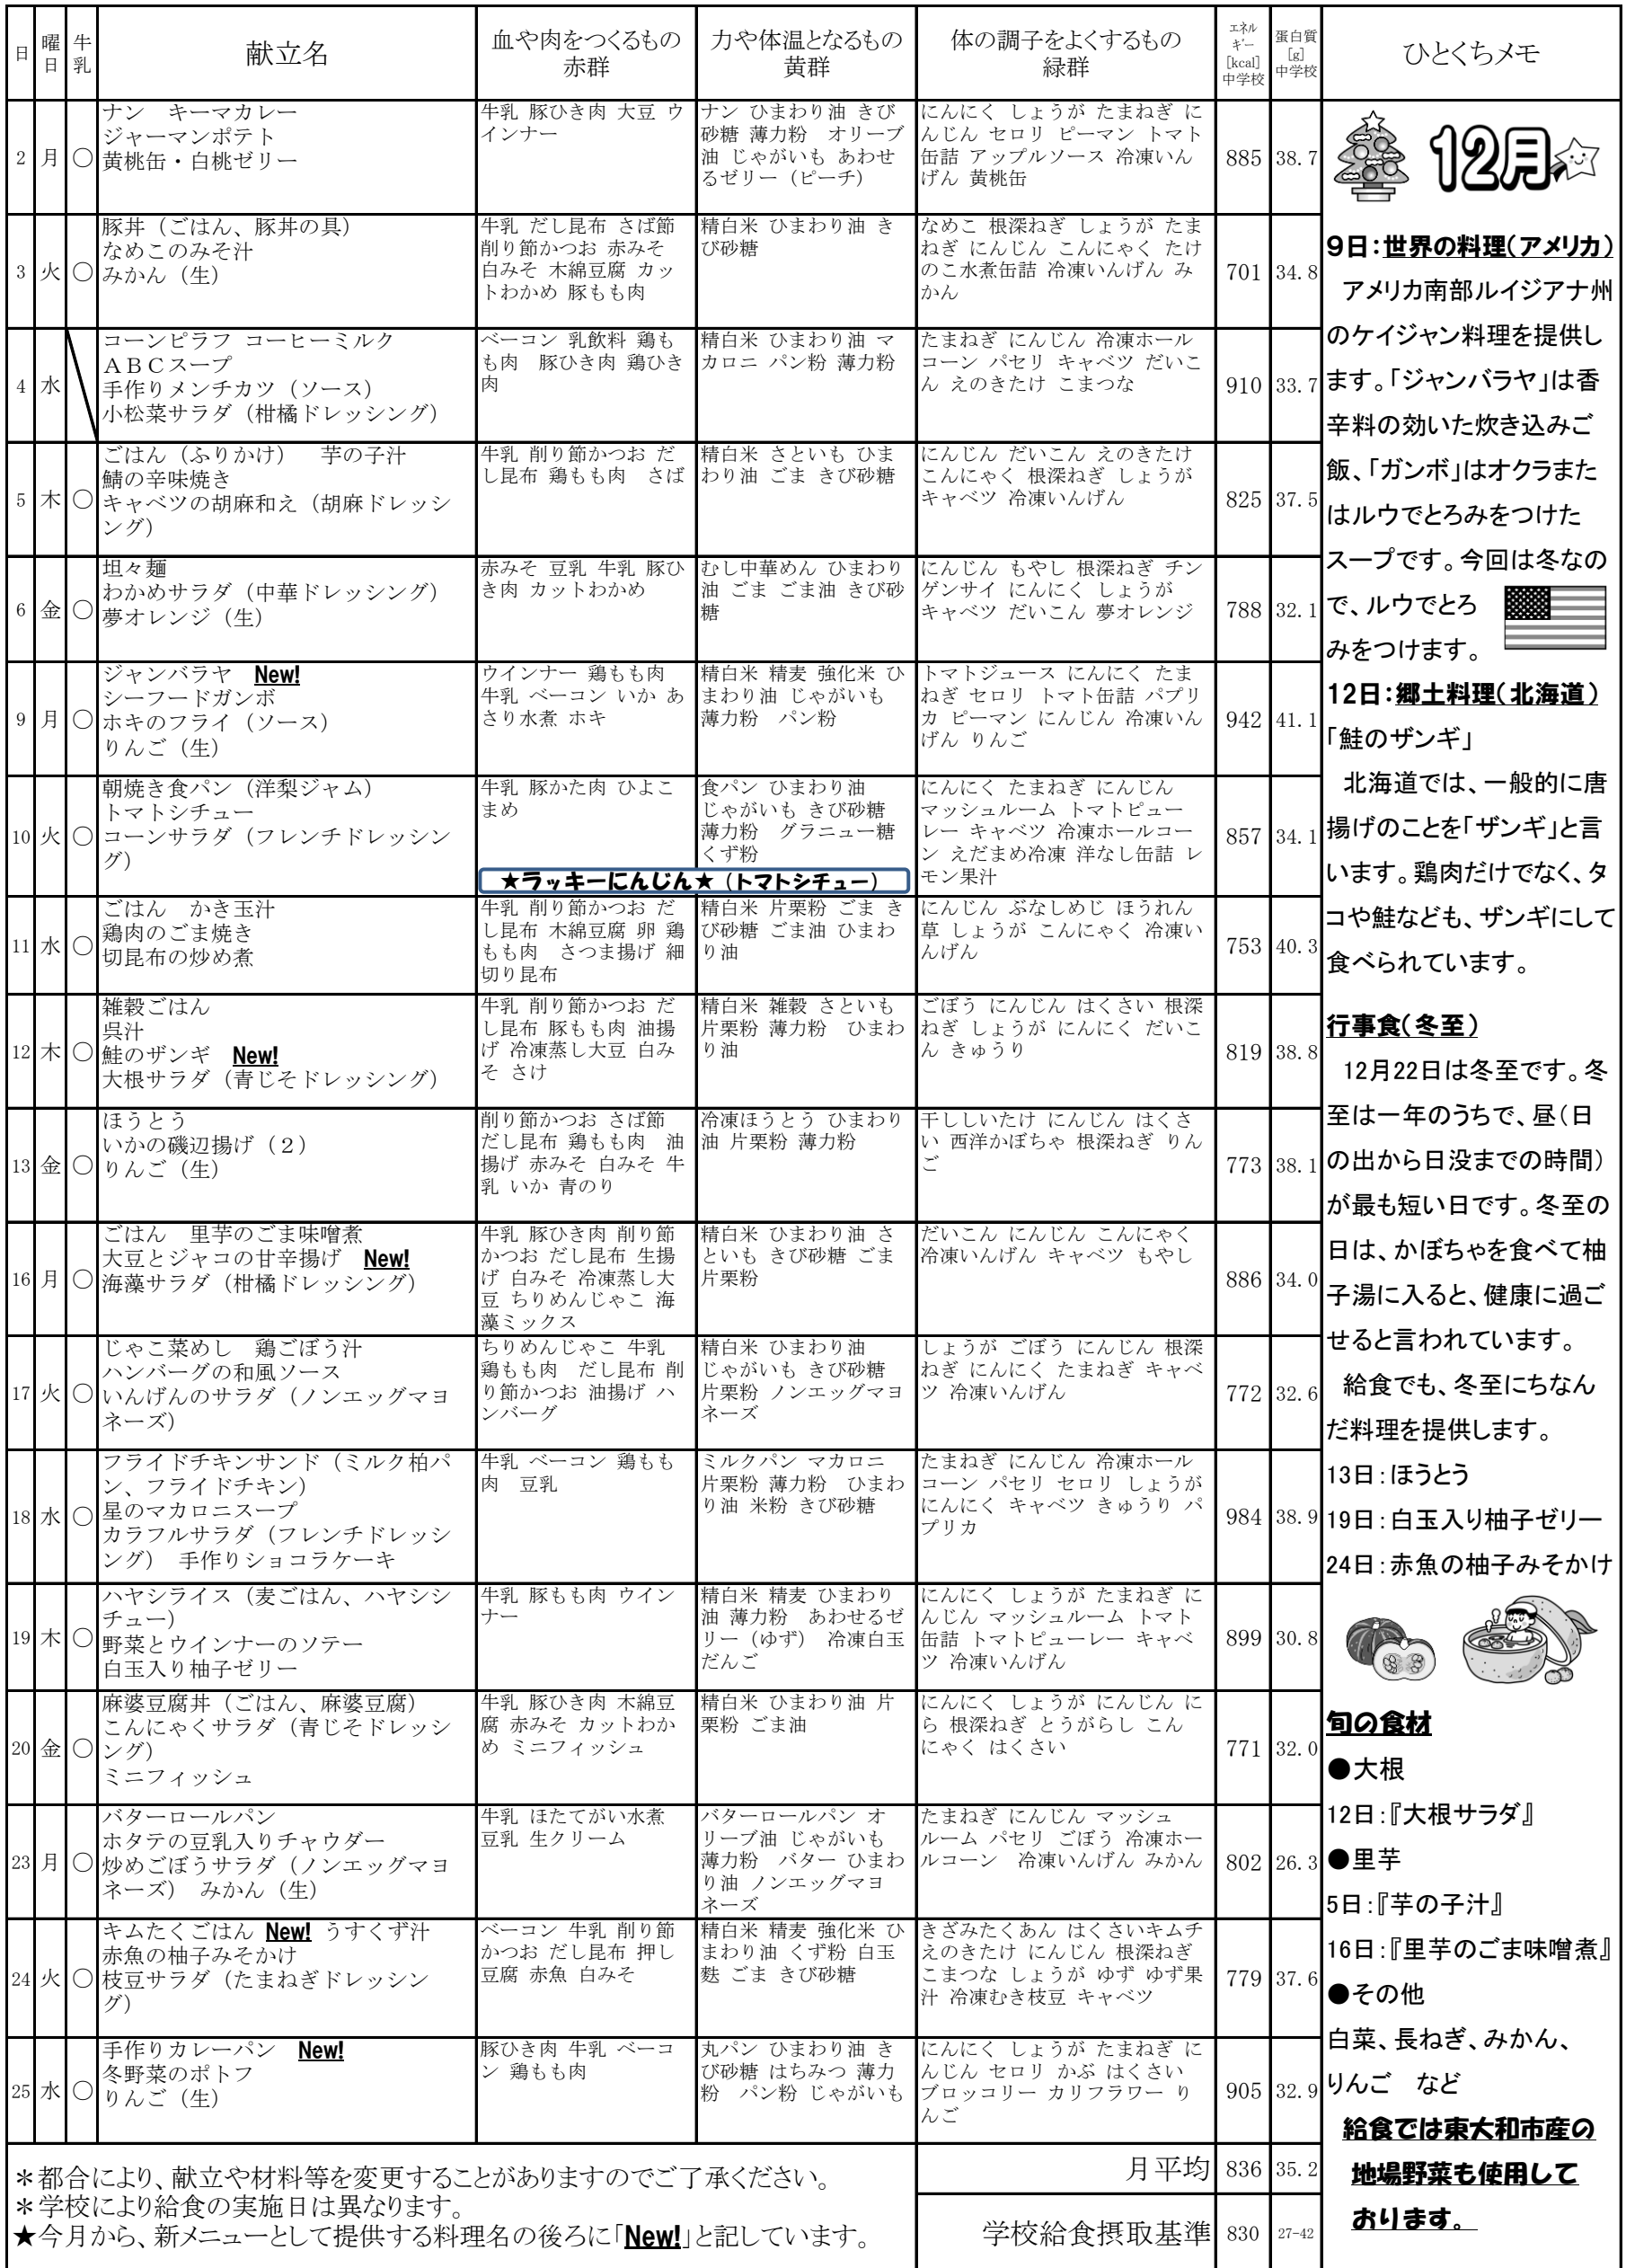 日 曜日 牛乳 献立名 血や肉をつくるもの 赤群 力や体温となるもの 黄群 体の調子をよくするもの 緑群 エネルギー [kcal] 中学校 蛋白質 [g] 中学校 ひとくちメモ
2 月 ○
ナン　キーマカレー
ジャーマンポテト
黄桃缶・白桃ゼリー
牛乳 豚ひき肉 大豆 ウ
インナー
ナン ひまわり油 きび
砂糖 薄力粉　オリーブ
油 じゃがいも あわせ
るゼリー（ピーチ）
にんにく しょうが たまねぎ に
んじん セロリ ピーマン トマト
缶詰 アップルソース 冷凍いん
げん 黄桃缶
885 38.7
3 火 ○
豚丼（ごはん、豚丼の具）
なめこのみそ汁
みかん（生）
牛乳 だし昆布 さば節
削り節かつお 赤みそ
白みそ 木綿豆腐 カッ
トわかめ 豚もも肉
精白米 ひまわり油 き
び砂糖
なめこ 根深ねぎ しょうが たま
ねぎ にんじん こんにゃく たけ
のこ水煮缶詰 冷凍いんげん み
かん
701 34.8
4 水
コーンピラフ コーヒーミルク
ＡＢＣスープ
手作りメンチカツ（ソース）
小松菜サラダ（柑橘ドレッシング）
ベーコン 乳飲料 鶏も
も肉　豚ひき肉 鶏ひき
肉
精白米 ひまわり油 マ
カロニ パン粉 薄力粉
たまねぎ にんじん 冷凍ホール
コーン パセリ キャベツ だいこ
ん えのきたけ こまつな
910 33.7
5 木 ○
ごはん（ふりかけ）　芋の子汁
鯖の辛味焼き
キャベツの胡麻和え（胡麻ドレッシ
ング）
牛乳 削り節かつお だ
し昆布 鶏もも肉　さば
精白米 さといも ひま
わり油 ごま きび砂糖
にんじん だいこん えのきたけ
こんにゃく 根深ねぎ しょうが
キャベツ 冷凍いんげん
825 37.5
6 金 ○
坦々麺
わかめサラダ（中華ドレッシング）
夢オレンジ（生）
赤みそ 豆乳 牛乳 豚ひ
き肉 カットわかめ
むし中華めん ひまわり
油 ごま ごま油 きび砂
糖
にんじん もやし 根深ねぎ チン
ゲンサイ にんにく しょうが
キャベツ だいこん 夢オレンジ
788 32.1
9 月 ○
ジャンバラヤ　New!
シーフードガンボ
ホキのフライ（ソース）
りんご（生）
ウインナー 鶏もも肉
牛乳 ベーコン いか あ
さり水煮 ホキ
精白米 精麦 強化米 ひ
まわり油 じゃがいも
薄力粉　パン粉
トマトジュース にんにく たま
ねぎ セロリ トマト缶詰 パプリ
カ ピーマン にんじん 冷凍いん
げん りんご
942 41.1
10 火 ○
朝焼き食パン（洋梨ジャム）
トマトシチュー
コーンサラダ（フレンチドレッシン
グ）
牛乳 豚かた肉 ひよこ
まめ
食パン ひまわり油
じゃがいも きび砂糖
薄力粉　グラニュー糖
くず粉
★ラッキーにんじん★（トマトシチュー）
にんにく たまねぎ にんじん
マッシュルーム トマトピュー
レー キャベツ 冷凍ホールコー
ン えだまめ冷凍 洋なし缶詰 レ
モン果汁
857 34.1
11 水 ○
ごはん　かき玉汁
鶏肉のごま焼き
切昆布の炒め煮
牛乳 削り節かつお だ
し昆布 木綿豆腐 卵 鶏
もも肉　さつま揚げ 細
切り昆布
精白米 片栗粉 ごま き
び砂糖 ごま油 ひまわ
り油
にんじん ぶなしめじ ほうれん
草 しょうが こんにゃく 冷凍い
んげん
753 40.3
12 木 ○
雑穀ごはん
呉汁
鮭のザンギ　New!
大根サラダ（青じそドレッシング）
牛乳 削り節かつお だ
し昆布 豚もも肉 油揚
げ 冷凍蒸し大豆 白み
そ さけ
精白米 雑穀 さといも
片栗粉 薄力粉　ひまわ
り油
ごぼう にんじん はくさい 根深
ねぎ しょうが にんにく だいこ
ん きゅうり
819 38.8
13 金 ○
ほうとう
いかの磯辺揚げ（２）
りんご（生）
削り節かつお さば節
だし昆布 鶏もも肉　油
揚げ 赤みそ 白みそ 牛
乳 いか 青のり
冷凍ほうとう ひまわり
油 片栗粉 薄力粉
干ししいたけ にんじん はくさ
い 西洋かぼちゃ 根深ねぎ りん
ご
773 38.1
16 月 ○
ごはん　里芋のごま味噌煮
大豆とジャコの甘辛揚げ　New!
海藻サラダ（柑橘ドレッシング）
牛乳 豚ひき肉 削り節
かつお だし昆布 生揚
げ 白みそ 冷凍蒸し大
豆 ちりめんじゃこ 海
藻ミックス
精白米 ひまわり油 さ
といも きび砂糖 ごま
片栗粉
だいこん にんじん こんにゃく
冷凍いんげん キャベツ もやし
886 34.0
17 火 ○
じゃこ菜めし　鶏ごぼう汁
ハンバーグの和風ソース
いんげんのサラダ（ノンエッグマヨ
ネーズ）
ちりめんじゃこ 牛乳
鶏もも肉　だし昆布 削
り節かつお 油揚げ ハ
ンバーグ
精白米 ひまわり油
じゃがいも きび砂糖
片栗粉 ノンエッグマヨ
ネーズ
しょうが ごぼう にんじん 根深
ねぎ にんにく たまねぎ キャベ
ツ 冷凍いんげん
772 32.6
18 水 ○
フライドチキンサンド（ミルク柏パ
ン、フライドチキン）
星のマカロニスープ
カラフルサラダ（フレンチドレッシ
ング）　手作りショコラケーキ
牛乳 ベーコン 鶏もも
肉　豆乳
ミルクパン マカロニ
片栗粉 薄力粉　ひまわ
り油 米粉 きび砂糖
たまねぎ にんじん 冷凍ホール
コーン パセリ セロリ しょうが
にんにく キャベツ きゅうり パ
プリカ
984 38.9
19 木 ○
ハヤシライス（麦ごはん、ハヤシシ
チュー）
野菜とウインナーのソテー
白玉入り柚子ゼリー
牛乳 豚もも肉 ウイン
ナー
精白米 精麦 ひまわり
油 薄力粉　あわせるゼ
リー（ゆず）　冷凍白玉
だんご
にんにく しょうが たまねぎ に
んじん マッシュルーム トマト
缶詰 トマトピューレー キャベ
ツ 冷凍いんげん
899 30.8
20 金 ○
麻婆豆腐丼（ごはん、麻婆豆腐）
こんにゃくサラダ（青じそドレッシ
ング）
ミニフィッシュ
牛乳 豚ひき肉 木綿豆
腐 赤みそ カットわか
め ミニフィッシュ
精白米 ひまわり油 片
栗粉 ごま油
にんにく しょうが にんじん に
ら 根深ねぎ とうがらし こん
にゃく はくさい
771 32.0
23 月 ○
バターロールパン
ホタテの豆乳入りチャウダー
炒めごぼうサラダ（ノンエッグマヨ
ネーズ）　みかん（生）
牛乳 ほたてがい水煮
豆乳 生クリーム
バターロールパン オ
リーブ油 じゃがいも
薄力粉　バター ひまわ
り油 ノンエッグマヨ
ネーズ
たまねぎ にんじん マッシュ
ルーム パセリ ごぼう 冷凍ホー
ルコーン　冷凍いんげん みかん
802 26.3
24 火 ○
キムたくごはん New! うすくず汁
赤魚の柚子みそかけ
枝豆サラダ（たまねぎドレッシン
グ）
ベーコン 牛乳 削り節
かつお だし昆布 押し
豆腐 赤魚 白みそ
精白米 精麦 強化米 ひ
まわり油 くず粉 白玉
麩 ごま きび砂糖
きざみたくあん はくさいキムチ
えのきたけ にんじん 根深ねぎ
こまつな しょうが ゆず ゆず果
汁 冷凍むき枝豆 キャベツ
779 37.6
25 水 ○
手作りカレーパン　New!
冬野菜のポトフ
りんご（生）
豚ひき肉 牛乳 ベーコ
ン 鶏もも肉
丸パン ひまわり油 き
び砂糖 はちみつ 薄力
粉　パン粉 じゃがいも
にんにく しょうが たまねぎ に
んじん セロリ かぶ はくさい
ブロッコリー カリフラワー り
んご
905 32.9
＊都合により、献立や材料等を変更することがありますのでご了承ください。
＊学校により給食の実施日は異なります。
★今月から、新メニューとして提供する料理名の後ろに「New!」と記しています。
月平均 836 35.2
学校給食摂取基準 830 27-42
12月
9日：世界の料理（アメリカ）
アメリカ南部ルイジアナ州
のケイジャン料理を提供し
ます。「ジャンバラヤ」は香
辛料の効いた炊き込みご
飯、「ガンボ」はオクラまた
はルウでとろみをつけた
スープです。今回は冬なの
で、ルウでとろ
みをつけます。
12日：郷土料理（北海道）
「鮭のザンギ」
北海道では、一般的に唐
揚げのことを「ザンギ」と言
います。鶏肉だけでなく、タ
コや鮭なども、ザンギにして
食べられています。
行事食（冬至）
12月22日は冬至です。冬
至は一年のうちで、昼（日
の出から日没までの時間）
が最も短い日です。冬至の
日は、かぼちゃを食べて柚
子湯に入ると、健康に過ご
せると言われています。
給食でも、冬至にちなん
だ料理を提供します。
13日：ほうとう
19日：白玉入り柚子ゼリー
24日：赤魚の柚子みそかけ
旬の食材
●大根
12日：『大根サラダ』
●里芋
5日：『芋の子汁』
16日：『里芋のごま味噌煮』
●その他
白菜、長ねぎ、みかん、
りんご　など
給食では東大和市産の
地場野菜も使用して
おります。